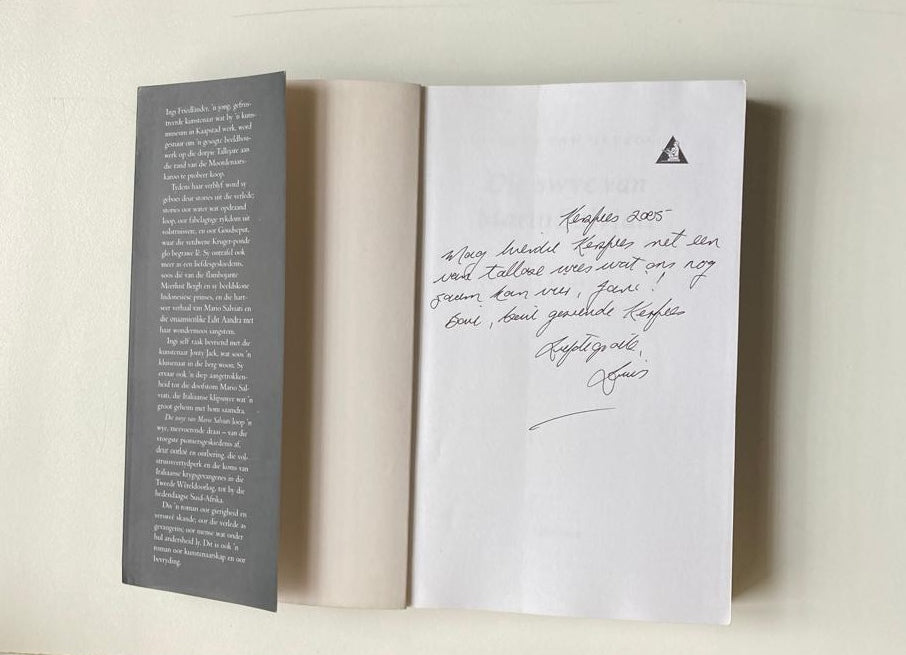 Inge Friedländer, 'n jong, gefrus-
treerde kunstenaar wat by 'n kuns-
museum in Kaapstad werk, word
gestuur om 'n gesogte beeldhou-
werk op die dorpie Tallejare aan
die rand van die Moordenaars-
karoo te probeer koop.
Tydens haar verblyf word sy
geboei deur stories uit die verlede;
stories oor water wat opdraand
loop, oor fabelagtige rykdom uit
volstruisvere, en oor Goudseput,
waar die verdwene Kruger-ponde
glo begrawe lê. Sy ontrafel ook
meer as een liefdesgeskiedenis,
soos dié van die flambojante
Meerlust Bergh en sy beeldskone
Indonesiese prinses, en die hart-
seer verhaal van Mario Salviati en
die onaansienlike Edit Aandra met
haar wondermooi sangstem.
Inge self raak bevriend met die
kunstenaar Jonty Jack, wat soos 'n
kluisenaar in die berg woon. Sy
ervaar ook 'n diep aangetrokken-
heid tot die doofstom Mario Sal-
viati, die Italiaanse klipmyer wat 'n
groot geheim met hom saamdra.
Die swye van Mario Salviati loop 'n
wye, meevoerende draai – van die
vroegste pioniersgeskiedenis af,
deur oorloë en ontbering, die vol-
struisveertydperk en die koms van
Italiaanse krygsgevangenes in die
Tweede Wêreldoorlog, tot by die
hedendaagse Suid-Afrika.
Dis 'n roman oor gierigheid en
versweë skande; oor die verlede as
gevangenis; oor mense wat onder
hul andersheid ly. Dit is ook 'n
roman oor kunstenaarskap en oor
bevryding.
Die swye van
Mario
Kersfees 2005
Mag hierdie Kersfees net een
van tallose wees wat ons nog
saam kan vier,
baie, baie geseënde Kersfees
Liefdegroete,